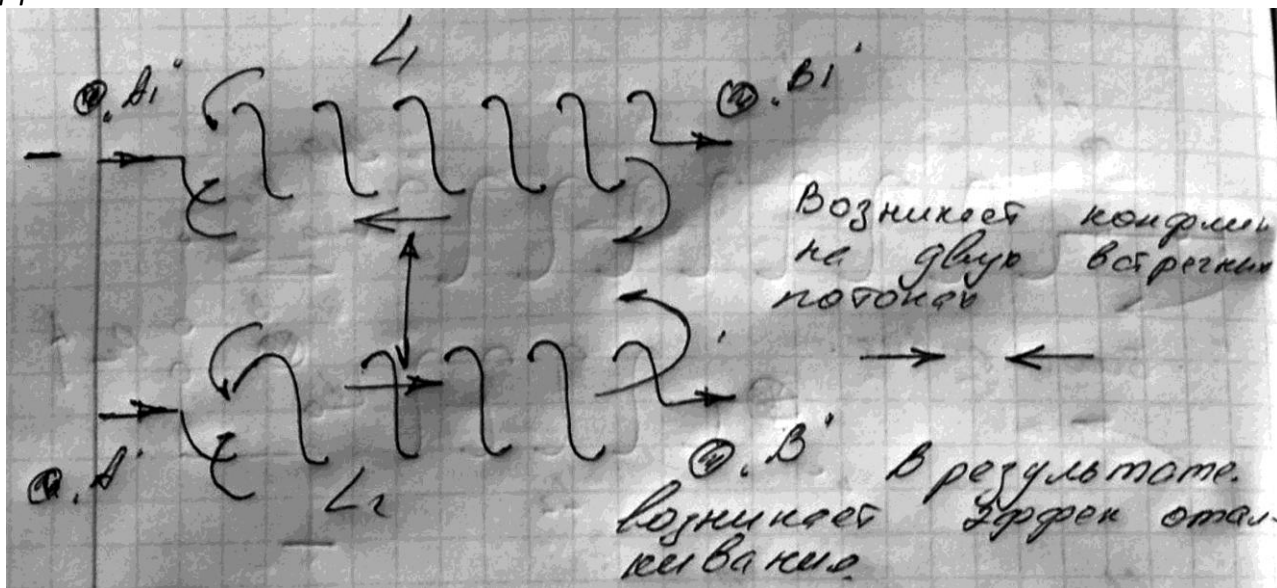 L1
A1'
B1'
Возникает конфли
на двух встречных
потоках
A'
L2
B'
В результате.
возникает эффек отал-
кивания.